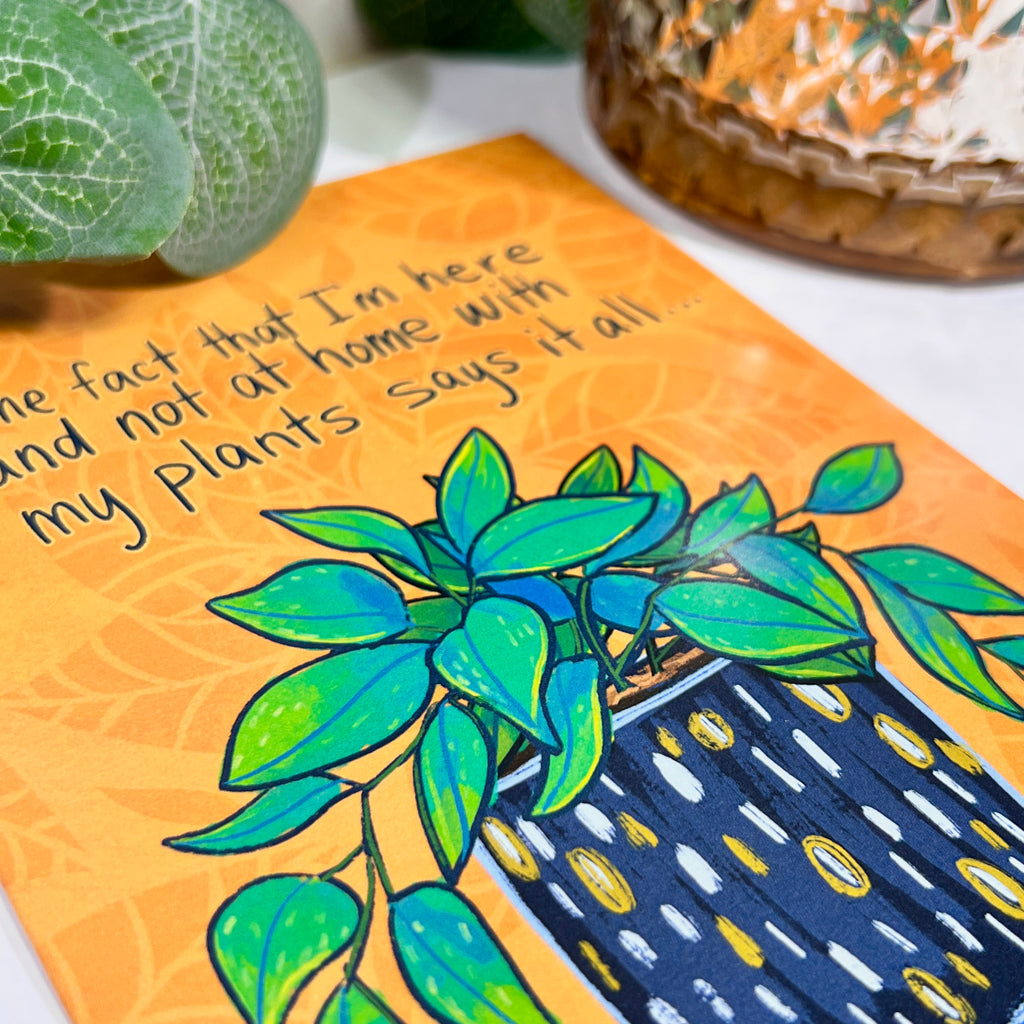 he fact that I'm here
and not at home with
my plants says it all...